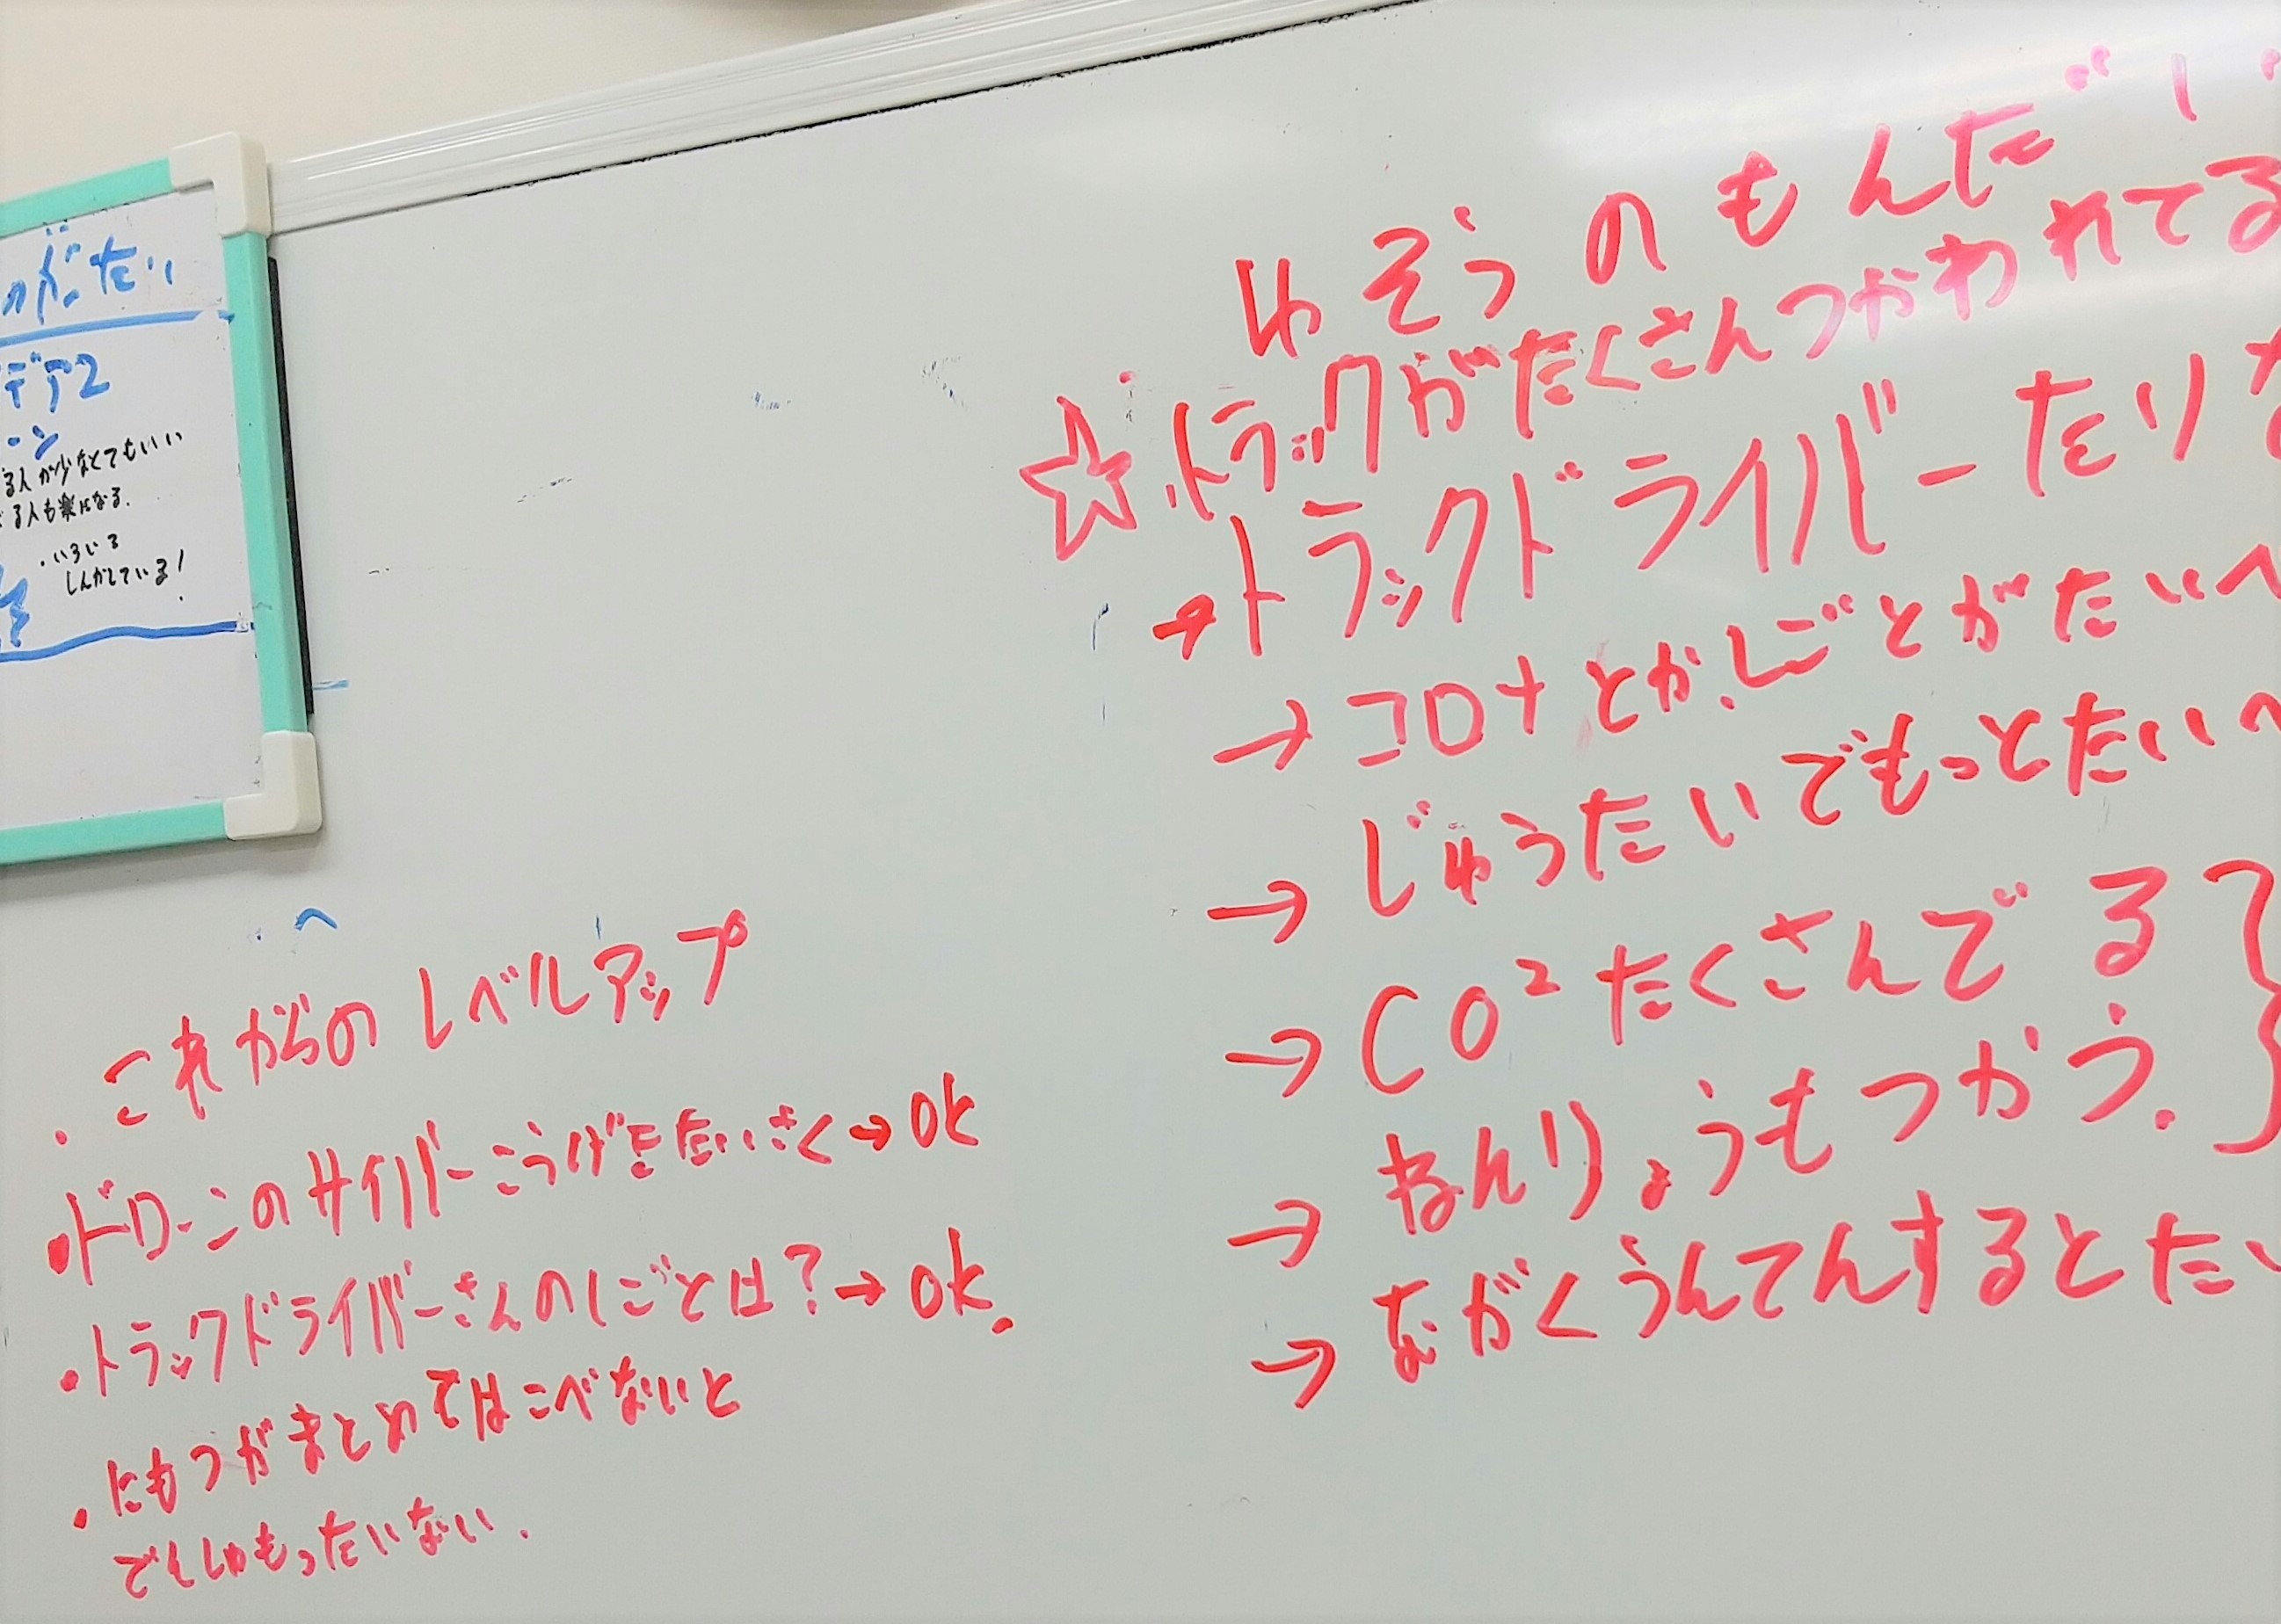 のがったい
デア2
ーン
る人が少なくてもいい
る人も楽になる.
・いろいろ
しんかしている!
ゆそうのもんだい
☆トラックがたくさんつかわれてる
→トラックドライバーたりな
→コロナとか.しごとがたいへ
→じゅうたいでもっとたいへ
→CO²たくさんでる
→ねんりょうもつかう.
→ながくうんてんするとたい
・これからのレベルアップ
・ドローンのサイバーこうげきたいさく→OK
・トラックドライバーさんのしごとは?→OK.
・にもつがまとめてはこべないと
でんしゃもったいない.